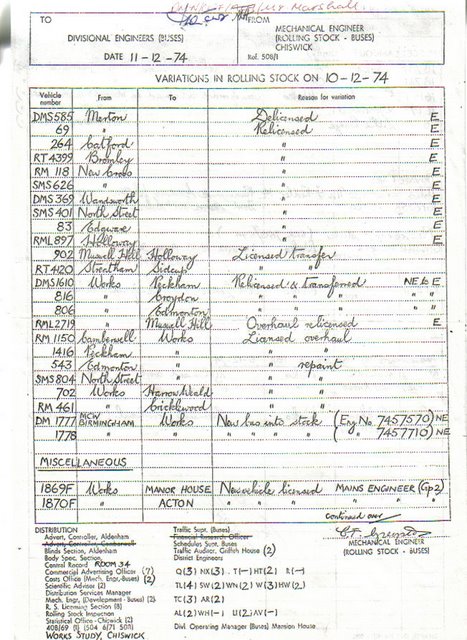 Marshall.
TO
FROM
DIVISIONAL ENGINEERS (BUSES)
MECHANICAL ENGINEER
(ROLLING STOCK - BUSES)
CHISWICK
DATE 11-12-74
Ref. 508/1
VARIATIONS IN ROLLING STOCK ON 10-12-74
Vehicle number From To Reason for variation
DMS 585 Merton Delicensed E
69 " Relicensed E
264 Catford " E
RT 4399 Bromley " E
RM 118 New Cross " E
SMS 626 " " E
DMS 369 Wandsworth " E
SMS 401 North Street " E
83 Edgware " E
RML 897 Holloway " E
902 Muswell Hill Holloway Licensed transfer
RT 4120 Streatham Sidcup " "
DMS 1610 Works Peckham Relicensed & transferred NE to E
816 " Croydon " " " " "
806 " Edmonton " " " " "
RML 2719 " Muswell Hill Overhaul relicensed E
RM 1150 Camberwell Works Licensed overhaul
1416 Peckham " " "
543 Edmonton " " repaint
SMS 804 North Street " " "
702 Works Harrow Weald " "
RM 461 " Cricklewood " "
DM 1777 MCW BIRMINGHAM Works New bus into stock (Eng. No. 7457570) NE
1778 " " " " " " ( " 7457710) NE
MISCELLANEOUS
1869F Works MANOR HOUSE New vehicle licensed MAINS ENGINEER (Gp 2)
1870F " ACTON " " " " " "
continued over
MECHANICAL ENGINEER
(ROLLING STOCK - BUSES)
DISTRIBUTION
Advert. Controller, Aldenham
Blinds Section, Aldenham
Body Spec. Section,
Central Record ROOM 34
Commercial Advertising Officer (7)
Costs Office (Mech. Engr.-Buses) (2)
Scientific Advisor (2)
Distribution Services Manager
Mech. Engr. (Development - Buses) (2)
R. S. Licensing Section (8)
Rolling Stock Inspection
Statistical Office - Chiswick (2)
408/69 (1) 504 6/71 508)
WORKS STUDY, CHISWICK
Traffic Supt. (Buses)
Financial Research Officer
Schedules Supt. Buses
Traffic Auditor, Griffith House (2)
District Engineers
Q (3) NX (3) . T (-) HT (2) R (-)
TL (4) SW (2) WN (2) W (3) HW (2)
TC (3) AR (2)
AL (2) WH (-) U (2) AV (-)
Divl. Operating Manager (Buses) Mansion House